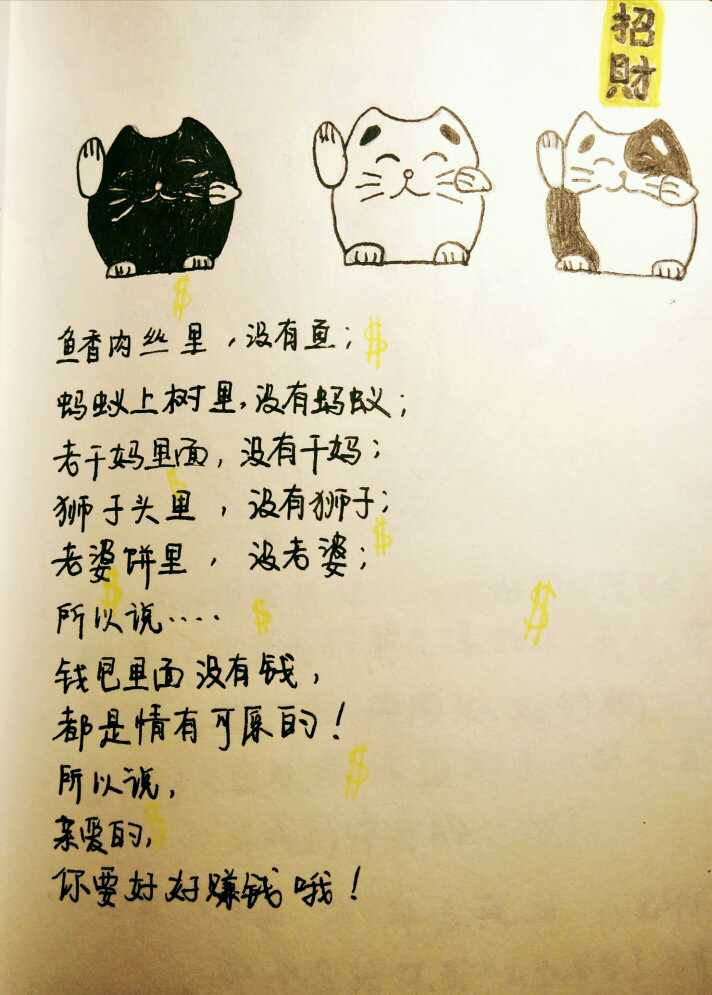 招財
鱼香肉丝里，没有鱼；
蚂蚁上树里，没有蚂蚁；
老干妈里面，没有干妈；
狮子头里，没有狮子；
老婆饼里，没老婆；
所以说·····
钱包里面没有钱，
都是情有可原的！
所以说，
亲爱的，
你要好好赚钱哦！